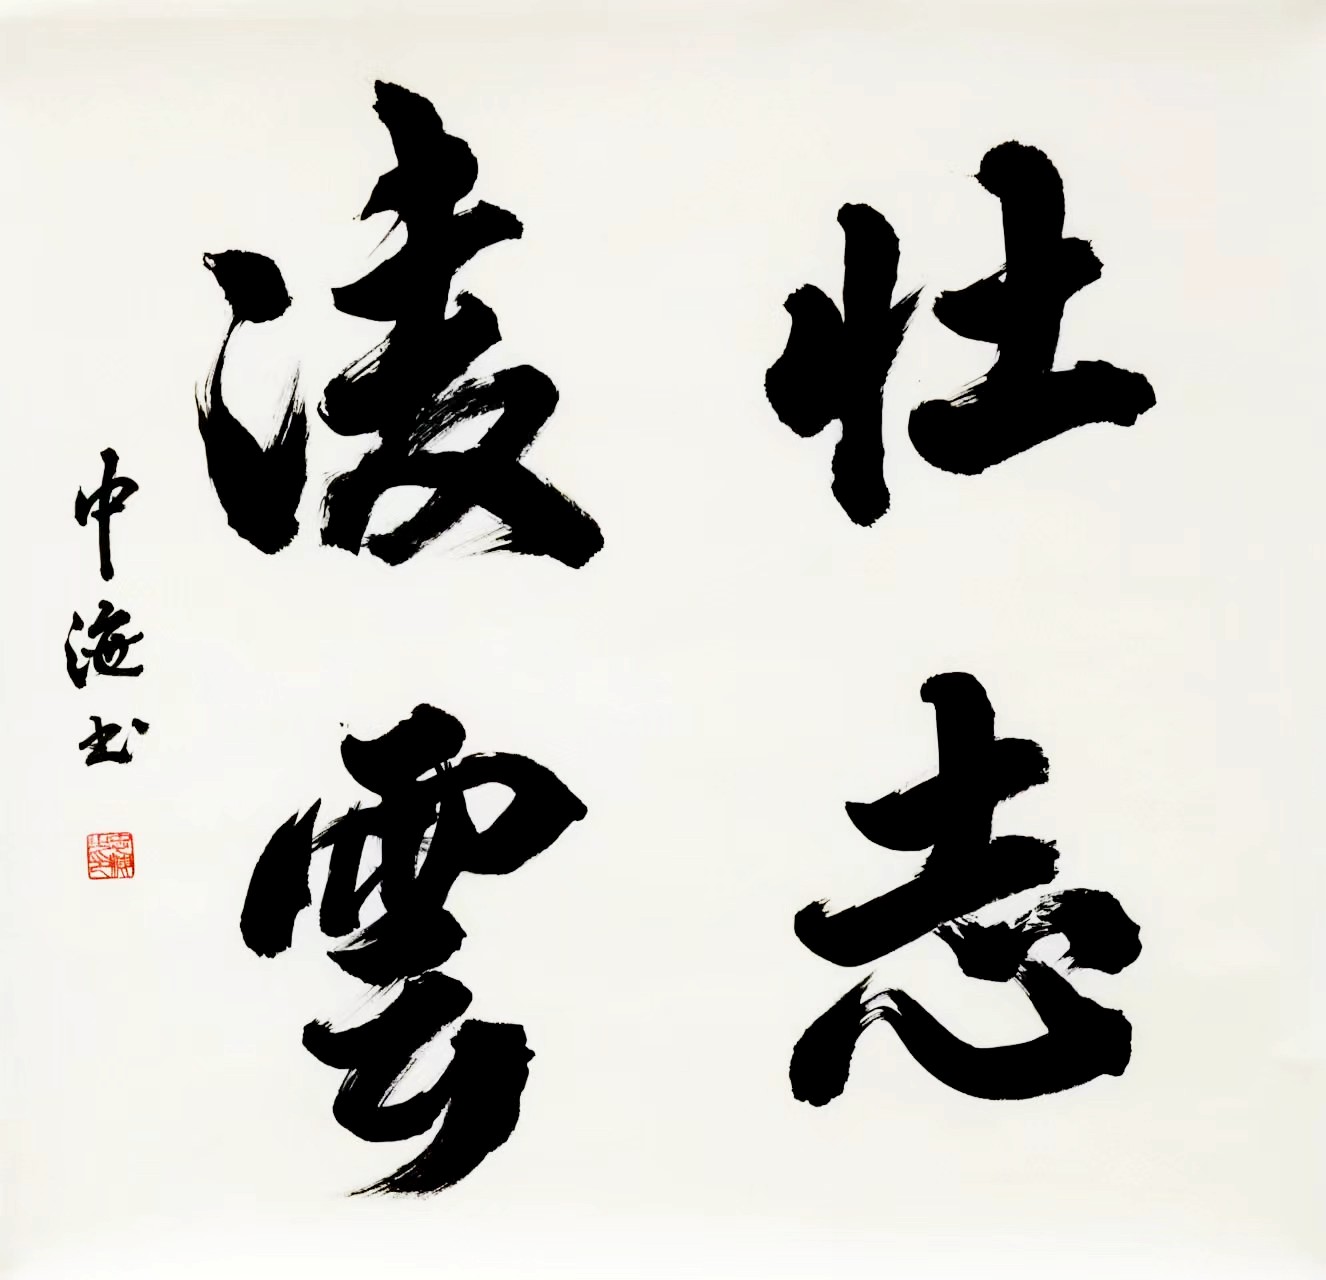 壮志
凌雲
中海书